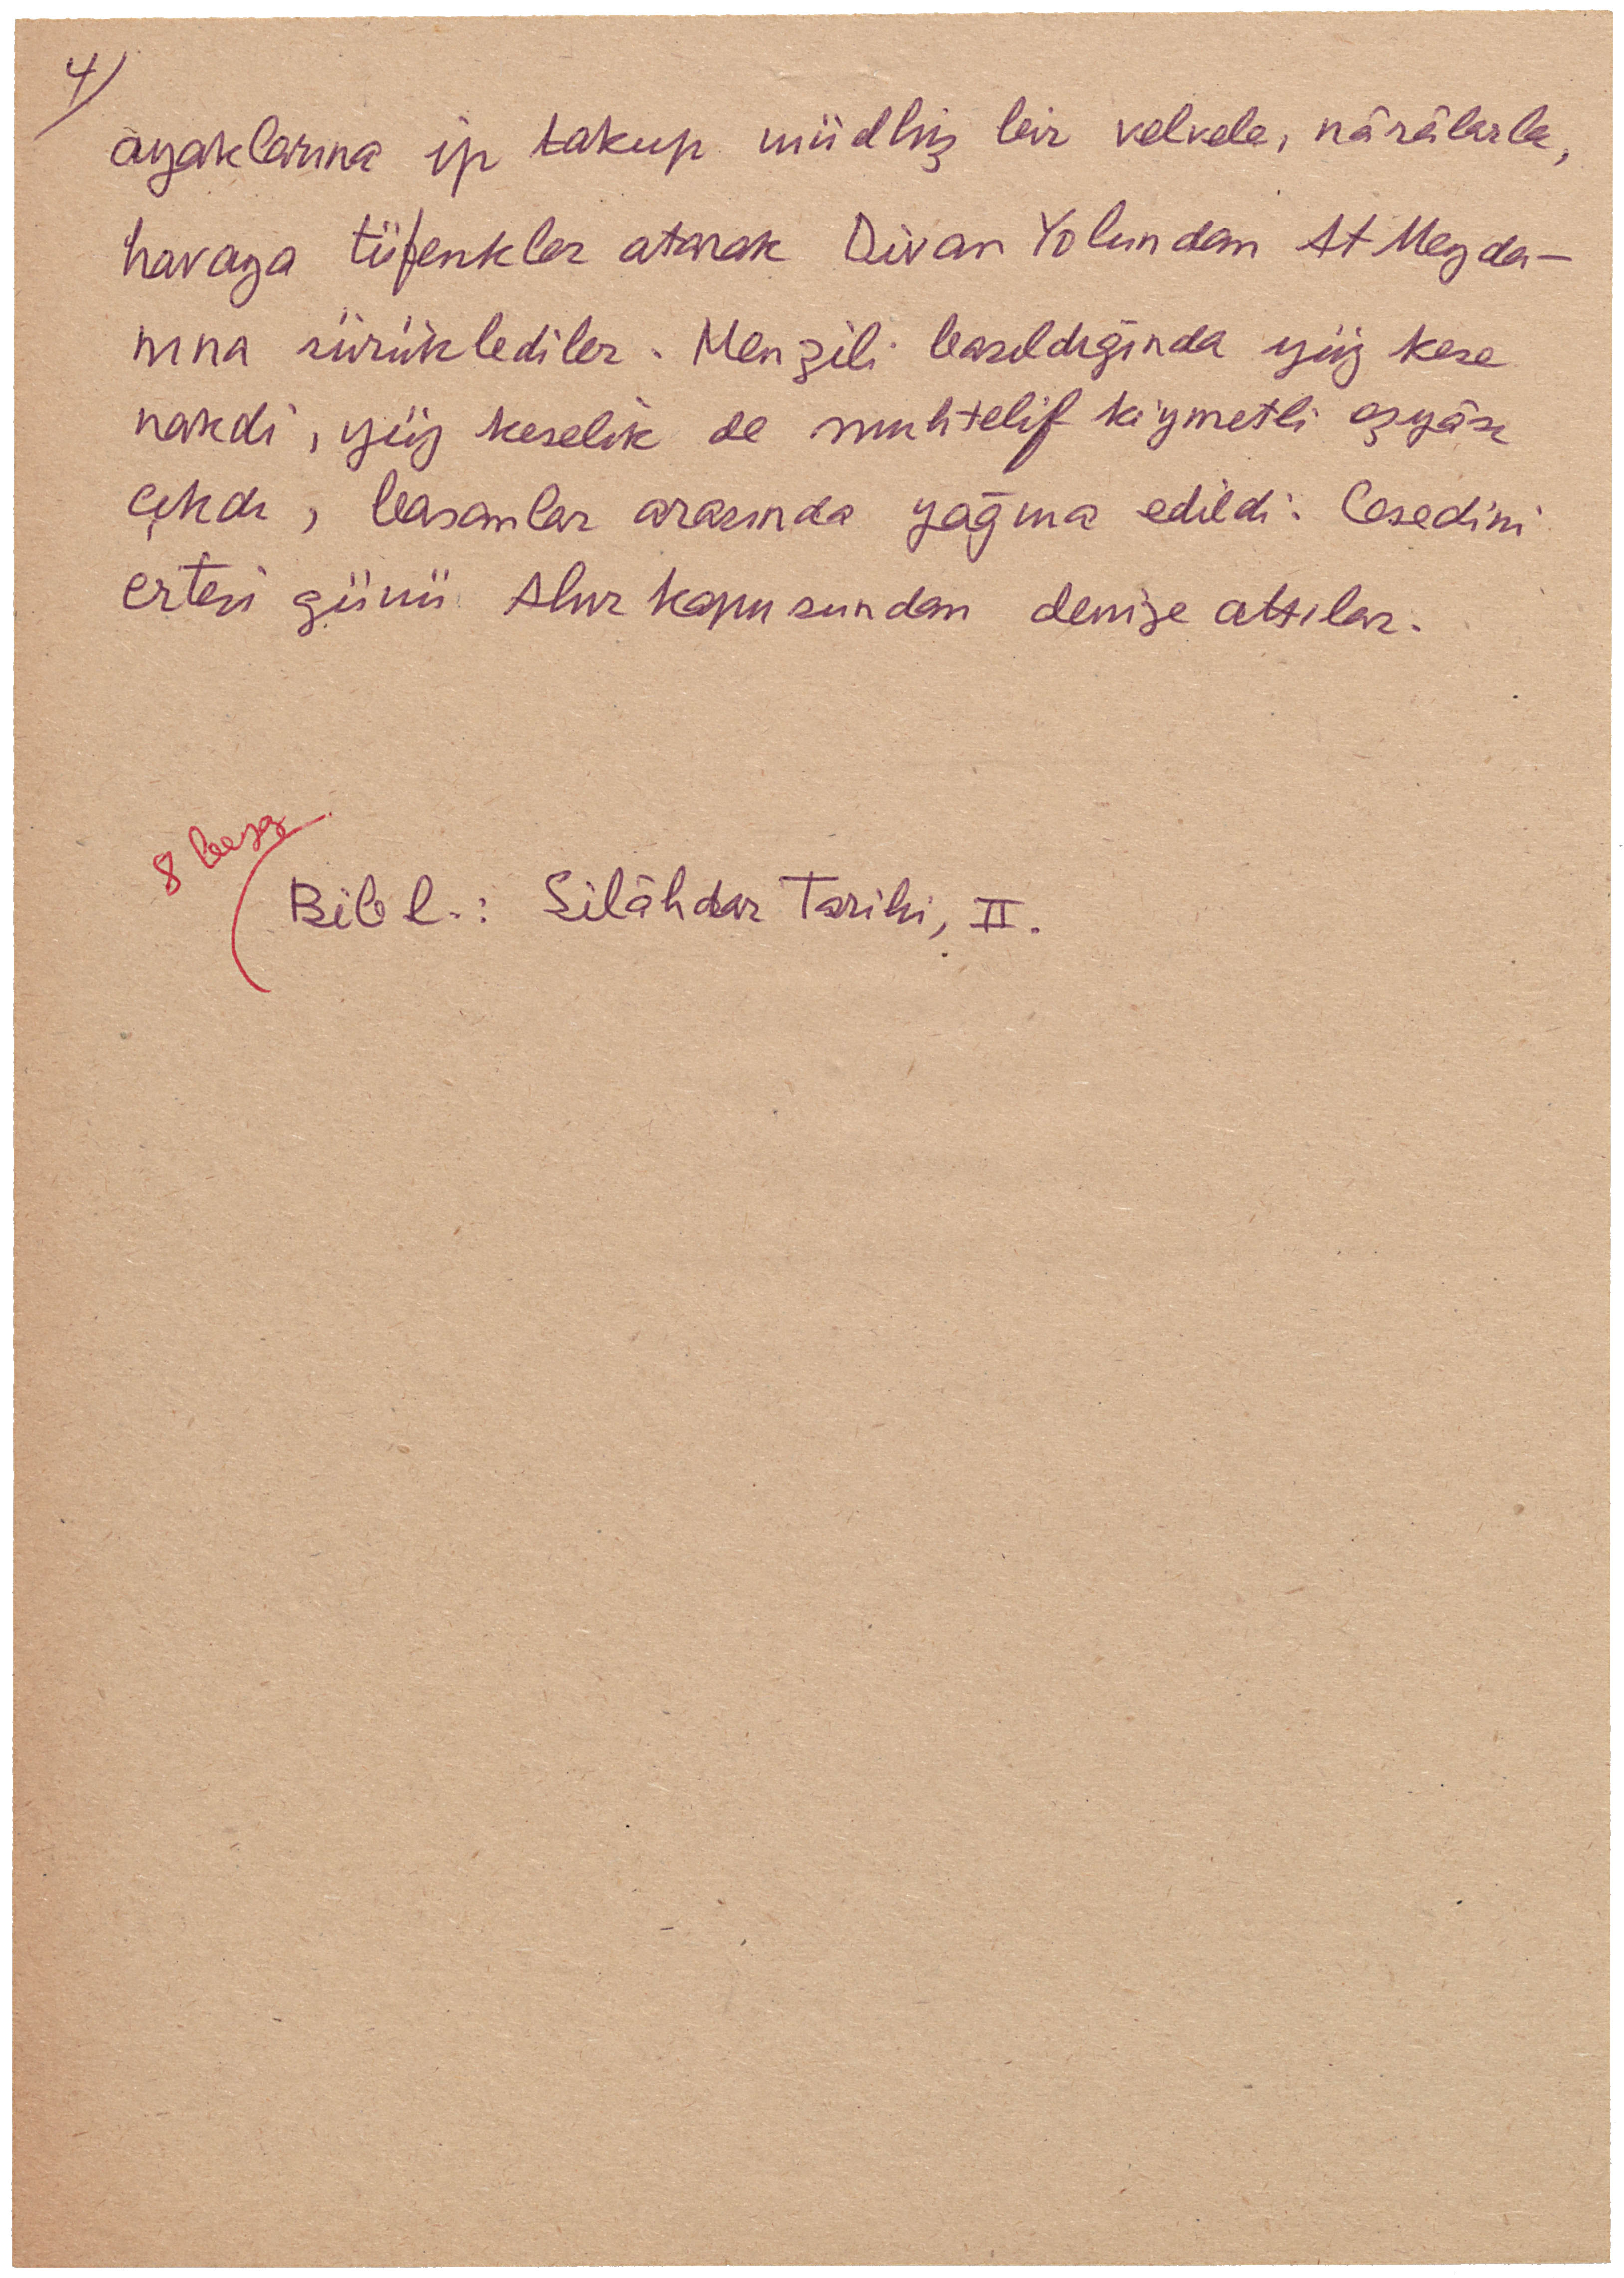 4)
ayaklarına ip takup müdhiş bir velvele, nârâlarla,
havaya tüfenkler atarak Divan Yolundan At Meyda-
nına sürüklediler. Menzili basıldığında yüz kese
nakdi, yüz keselik de muhtelif kıymetli eşyâsı
çıkdı, basanlar arasında yağma edildi. Cesedini
ertesi günü Ahurkapusundan denize attılar.
8 beyaz
Bibl.: Silâhdar Tarihi, II.